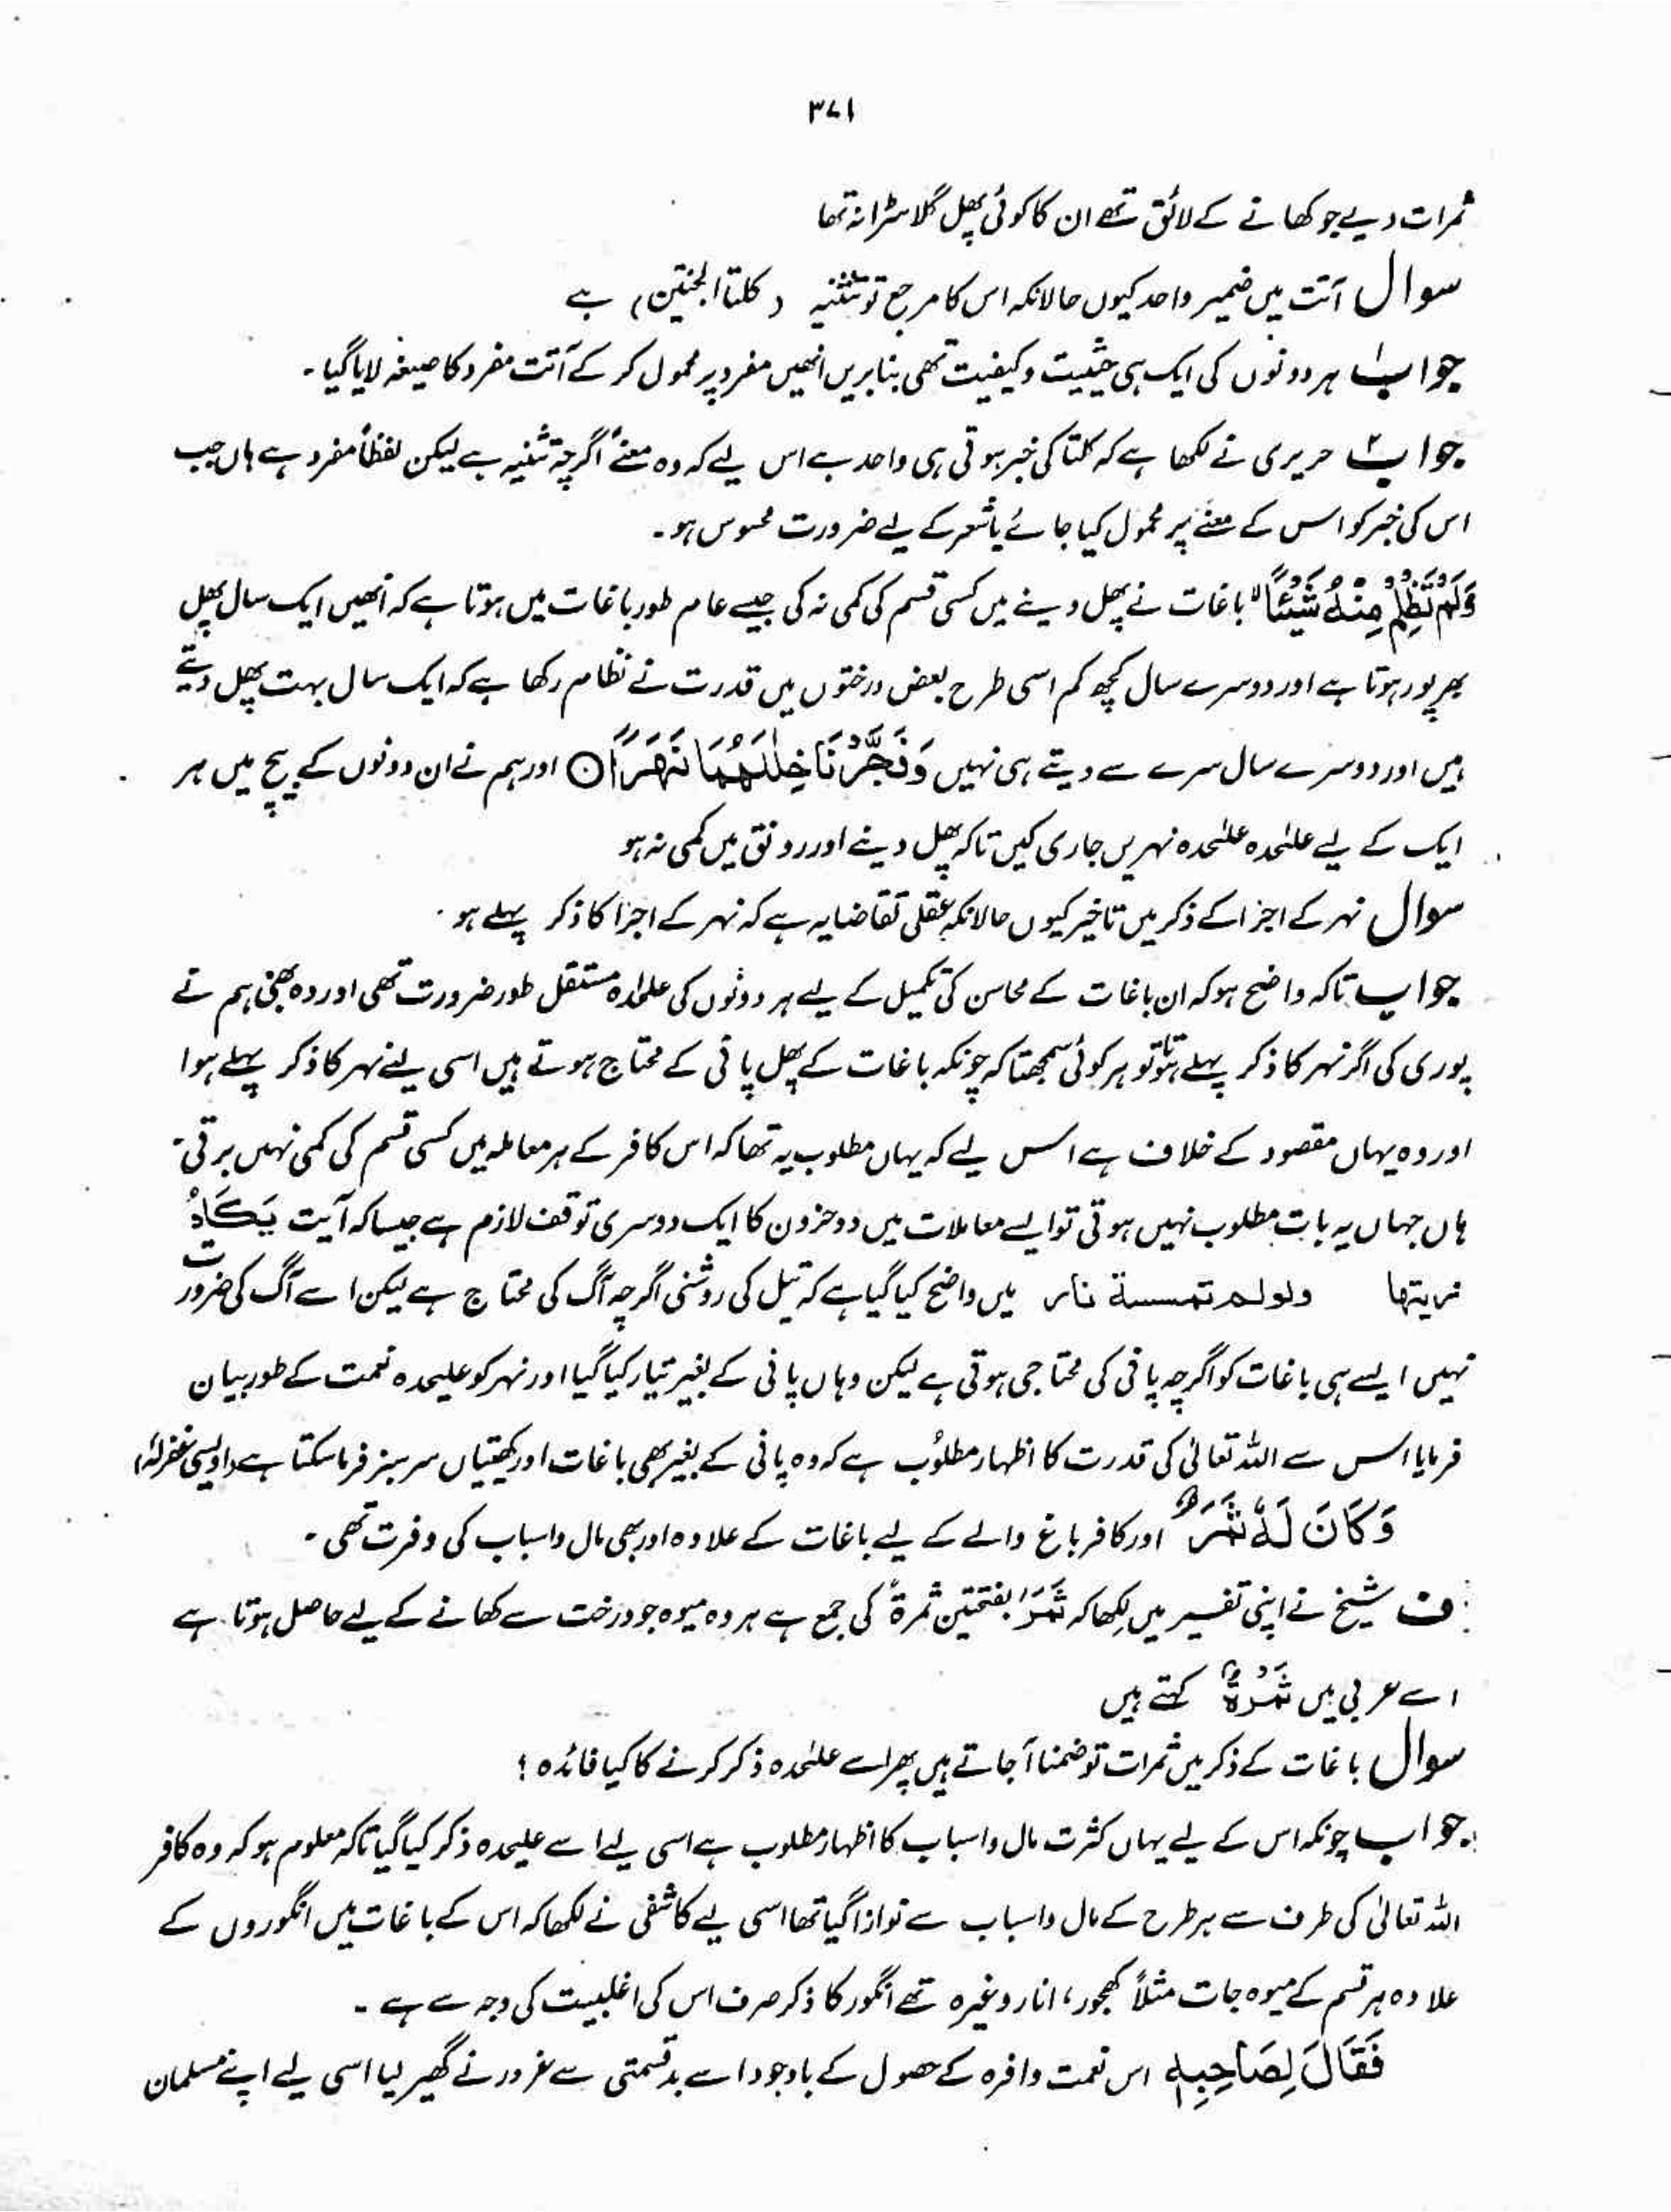 ۳۷۱
ثمرات دیے جو کھانے کے لائق تھے ان کا کوئی پھل گلا سڑا نہ تھا
سوال آتت میں ضمیر واحد کیوں حالانکہ اس کا مرجع تو تثنیہ (کلتا الجنتین) ہے
جواب۱ ہر دونوں کی ایک ہی حیثیت وکیفیت تھی بنابریں انھیں مفرد پر محمول کر کے آتت مفرد کا صیغہ لایا گیا۔
جواب۲ حریری نے لکھا ہے کہ کلتا کی خبر ہوتی ہی واحد ہے اس لیے کہ وہ معنےً اگرچہ تثنیہ ہے لیکن لفظاً مفرد ہے ہاں جب
اس کی خبر کو اس کے معنے پر محمول کیا جائے یا شعر کے لیے ضرورت محسوس ہو۔
وَلَمْ تَظْلِمْ مِنْهُ شَيْئًا ۙ باغات نے پھل دینے میں کسی قسم کی کمی نہ کی جیسے عام طور باغات میں ہوتا ہے کہ انھیں ایک سال پھل
بھرپور ہوتا ہے اور دوسرے سال کچھ کم اسی طرح بعض درختوں میں قدرت نے نظام رکھا ہے کہ ایک سال بہت پھل دیتے
ہیں اور دوسرے سال سرے سے دیتے ہی نہیں وَفَجَّرْنَا خِلٰلَهُمَا نَهَرًا ۝ اور ہم نے ان دونوں کے بیچ میں ہر
ایک کے لیے علٰحدہ علٰحدہ نہریں جاری کیں تاکہ پھل دینے اور رونق میں کمی نہ ہو
سوال نہر کے اجزا کے ذکر میں تاخیر کیوں حالانکہ عقلی تقاضا یہ ہے کہ نہر کے اجزا کا ذکر پہلے ہو۔
جواب تاکہ واضح ہو کہ ان باغات کے محاسن کی تکمیل کے لیے ہر دونوں کی علٰحدہ مستقل طور ضرورت تھی اور وہ بھی ہم نے
پوری کی اگر نہر کا ذکر پہلے ہوتا تو ہر کوئی سمجھتا کہ چونکہ باغات کے پھل پانی کے محتاج ہوتے ہیں اسی لیے نہر کا ذکر پہلے ہوا
اور وہ یہاں مقصود کے خلاف ہے اس لیے کہ یہاں مطلوب یہ تھا کہ اس کافر کے ہر معاملہ میں کسی قسم کی کمی نہیں برتی۔
ہاں جہاں یہ بات مطلوب نہیں ہوتی تو ایسے معاملات میں دو جزون کا ایک دوسری توقف لازم ہے جیسا کہ آیت یَکَادُ
زیتہا ولولم تمسسة نار میں واضح کیا گیا ہے کہ تیل کی روشنی اگرچہ آگ کی محتاج ہے لیکن اسے آگ کی ضرورت
نہیں ایسے ہی باغات کو اگرچہ پانی کی محتاجی ہوتی ہے لیکن وہاں پانی کے بغیر تیار کیا گیا اور نہر کو علیحدہ نعمت کے طور بیان
فرمایا اس سے اللہ تعالیٰ کی قدرت کا اظہار مطلوب ہے کہ وہ پانی کے بغیر بھی باغات اور کھیتیاں سرسبز فرما سکتا ہے (اویسی غفرلہ)
وَكَانَ لَهُ ثَمَرٌ اور کافر باغ والے کے لیے باغات کے علاوہ اور بھی مال واسباب کی وفرت تھی۔
ف شیخ نے اپنی تفسیر میں لکھا کہ ثَمَرَ بفتحتین ثمرۃ کی جمع ہے ہر وہ میوہ جو درخت سے کھانے کے لیے حاصل ہوتا ہے
اسے عربی میں ثَمْرَةٌ کہتے ہیں
سوال باغات کے ذکر میں ثمرات تو ضمنا آجاتے ہیں پھر اسے علٰحدہ ذکر کرنے کا کیا فائدہ ؟
جواب چونکہ اس کے لیے یہاں کثرت مال واسباب کا اظہار مطلوب ہے اسی لیے اسے علیحدہ ذکر کیا گیا تاکہ معلوم ہو کہ وہ کافر
اللہ تعالیٰ کی طرف سے ہر طرح کے مال واسباب سے نوازا گیا تھا اسی لیے کاشفی نے لکھا کہ اس کے باغات میں انگوروں کے
علاوہ ہر قسم کے میوہ جات مثلاً کھجور، انار وغیرہ تھے انگور کا ذکر صرف اس کی اغلبیت کی وجہ سے ہے۔
فَقَالَ لِصَاحِبِهٖ اس نعمت وافرہ کے حصول کے باوجود اسے بدقسمتی سے غرور نے گھیر لیا اسی لیے اپنے مسلمان